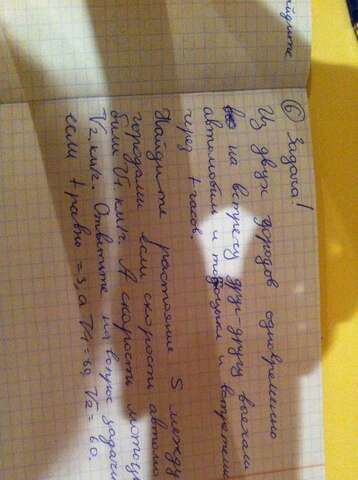 айдите
⑥ Задача!
Из двух городов одновременно
на встречу друг другу выехали
автомобиль и и встретели
через t часов.
Найдите растояние S между
городами если скорость автомо
биля V1 км/ч. А скорость мотоци
V2 км/ч. Ответьте на вопрос задачи
если t равно = 3, а V1 = 80, V2 = 60.